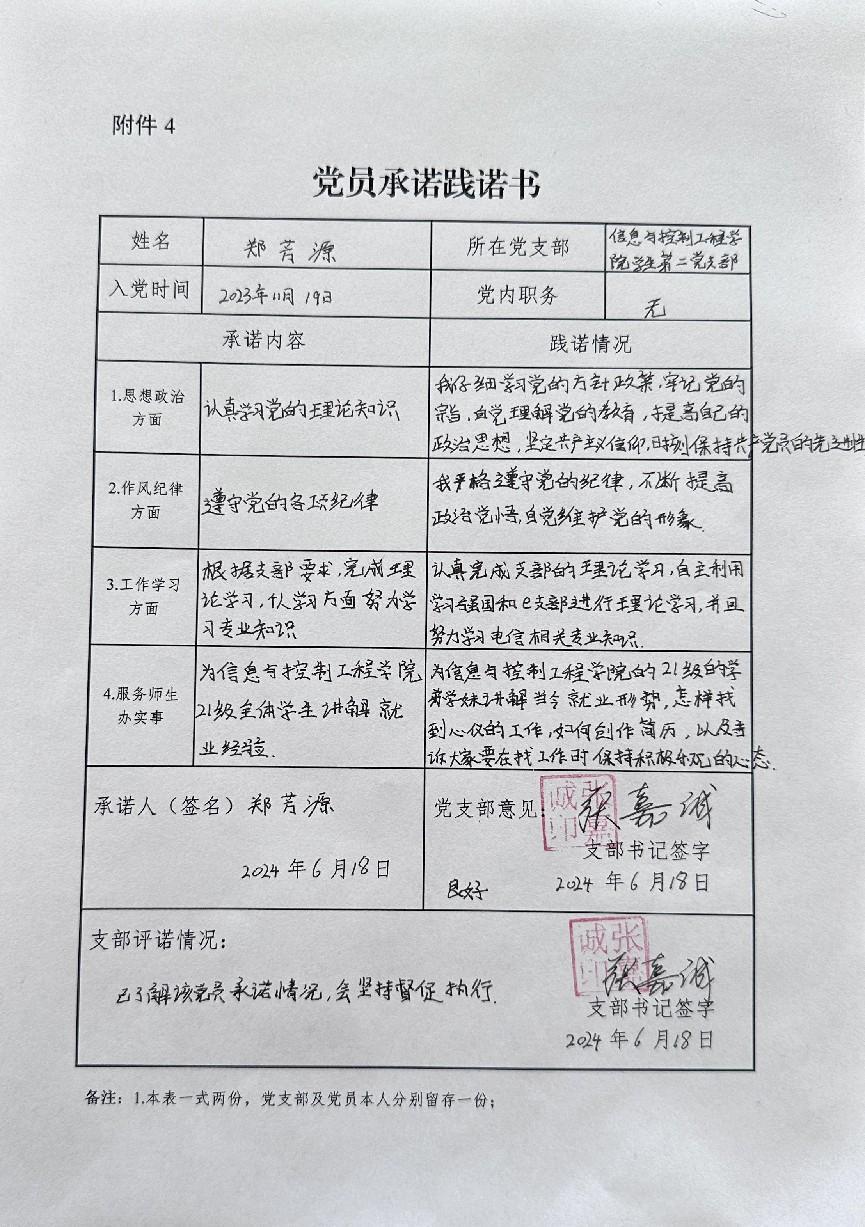 附件 4
党员承诺践诺书
姓名 郑芳源 所在党支部 信息与控制工程学
院学生第二党支部
入党时间 2023年11月19日 党内职务 无
承诺内容 践诺情况
1.思想政治
方面
认真学习党的理论知识
我仔细学习党的方针政策,牢记党的
宗旨,自觉理解党的教育,提高自己的
政治思想,坚定共产主义信仰,时刻保持共产党员的先进性
2.作风纪律
方面
遵守党的各项纪律
我严格遵守党的纪律,不断提高
政治觉悟,自觉维护党的形象.
3.工作学习
方面
根据支部要求,完成理
论学习,个人学习方面努力学
习专业知识
认真完成支部的理论学习,自主利用
学习强国和e支部进行理论学习,并且
努力学习电信相关专业知识.
4.服务师生
办实事
为信息与控制工程学院
21级全体学生讲解就
业经验.
为信息与控制工程学院的21级的学
弟学妹讲解当今就业形势,怎样找
到心仪的工作,如何创作简历,以及告
诉大家要在找工作时保持积极乐观的心态.
承诺人(签名)郑芳源
2024 年 6 月 18 日
党支部意见: 张嘉诚
张嘉
诚印
支部书记签字
良好
2024 年 6 月 18 日
支部评诺情况:
已了解该党员承诺情况,会坚持督促执行.
张嘉诚
张嘉
诚印
支部书记签字
2024 年 6 月 18 日
备注:1.本表一式两份,党支部及党员本人分别留存一份;